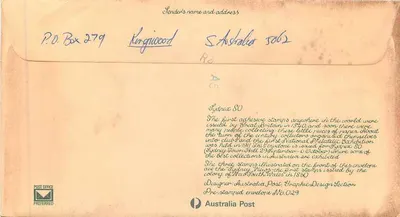 Sender's name and address
P.O. Box 279 Kingswood S. Australia 5062
Sydpex 80
The first adhesive stamps anywhere in the world were
issued by Great Britain in 1840 and soon there were
many people collecting these little pieces of paper. About
the turn of the century collectors organised themselves
into clubs and the first National Philatelic Exhibition
was held in
the best collections in Australia are exhibited.
The three stamps illustrated on the front of this envelope
are the Sydney Views the first stamps issued by the
colony of New South Wales in 1850.
Designer Australia Post Graphic Design Section
Pre-stamped envelope No. 029
POST OFFICE
PREFERRED
Australia Post